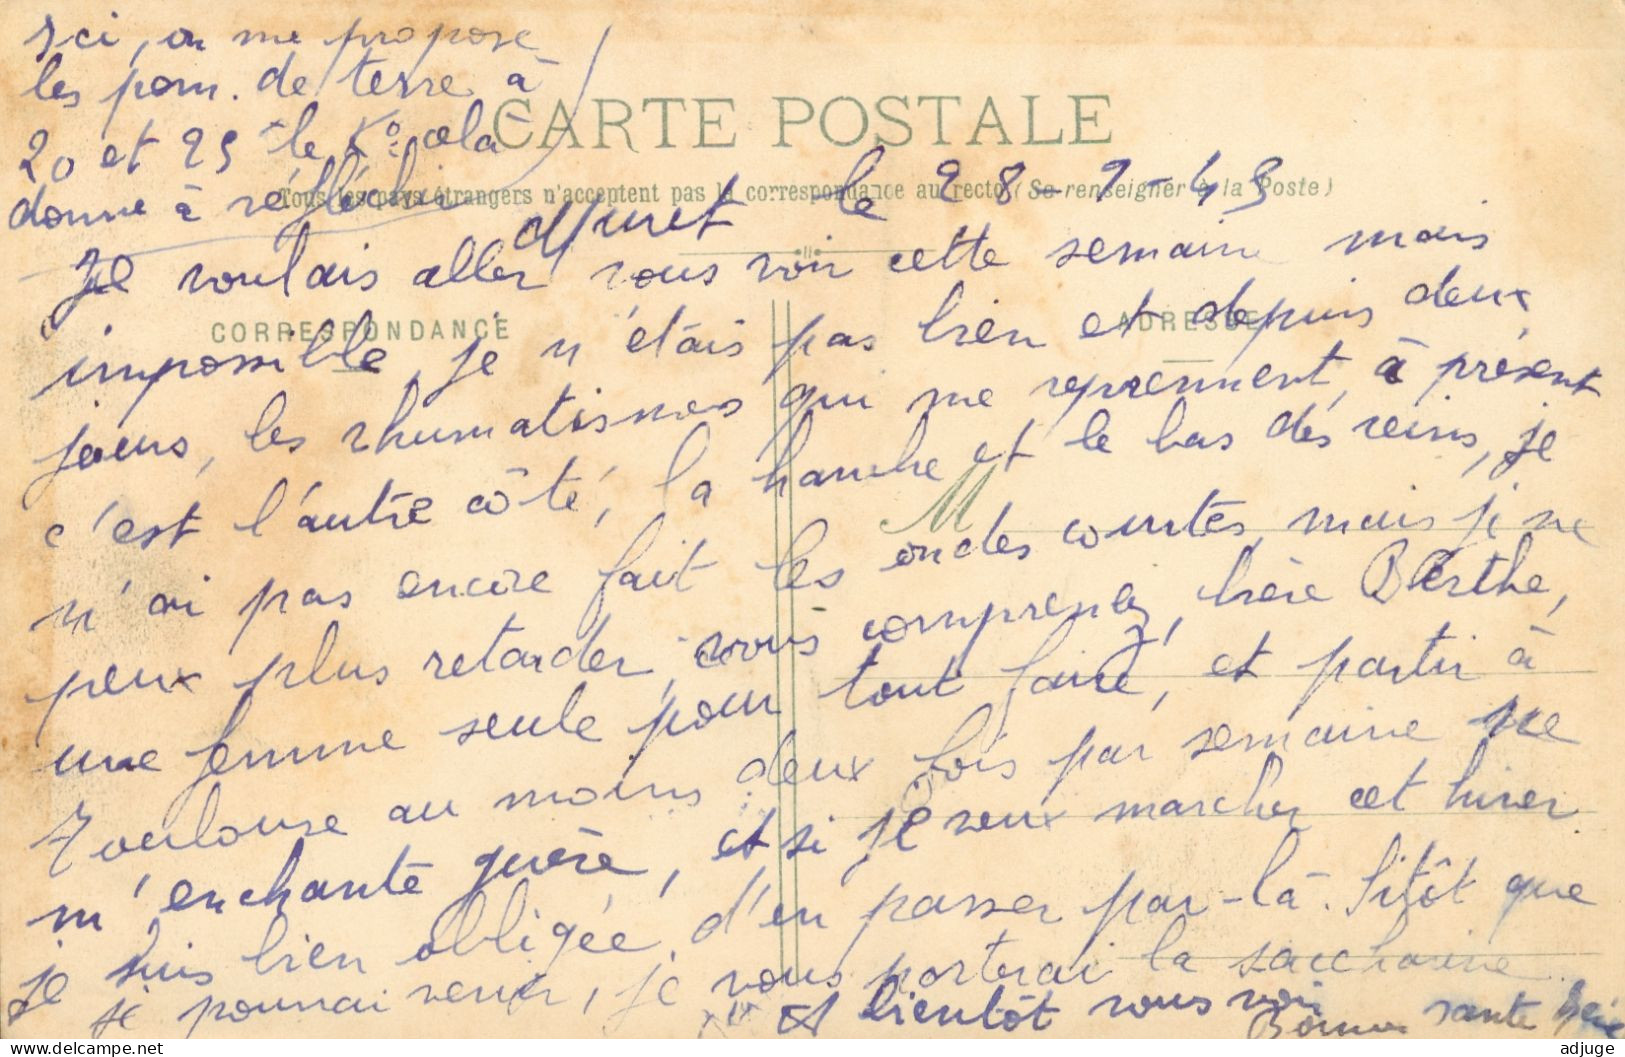 Ici, on me propose
les pom. de terre à
20 et 25 le K° cela
donne à réfléchir
CARTE POSTALE
Tous les pays étrangers n'acceptent pas la correspondance au recto (Se renseigner à la Poste)
Muret le 28-9-43
Je voulais aller vous voir cette semaine mais
CORRESPONDANCE
ADRESSE
impossible, je n'étais pas bien et depuis deux
jours, les rhumatismes qui me reprennent, à présent
c'est l'autre côté, la hanche et le bas des reins, je
M
n'ai pas encore fait les ondes courtes, mais je ne
peux plus retarder, vous comprenez, Berthe,
une femme seule pour tout faire, et partir à
Toulouse au moins deux fois par semaine ne
m'enchante guère, et si je veux marcher cet hiver
je suis bien obligée d'en passer par-là. Sitôt que
je pourrai venir, je vous porterai la saccharine
A bientôt vous voir
Bonne santé
adjuge